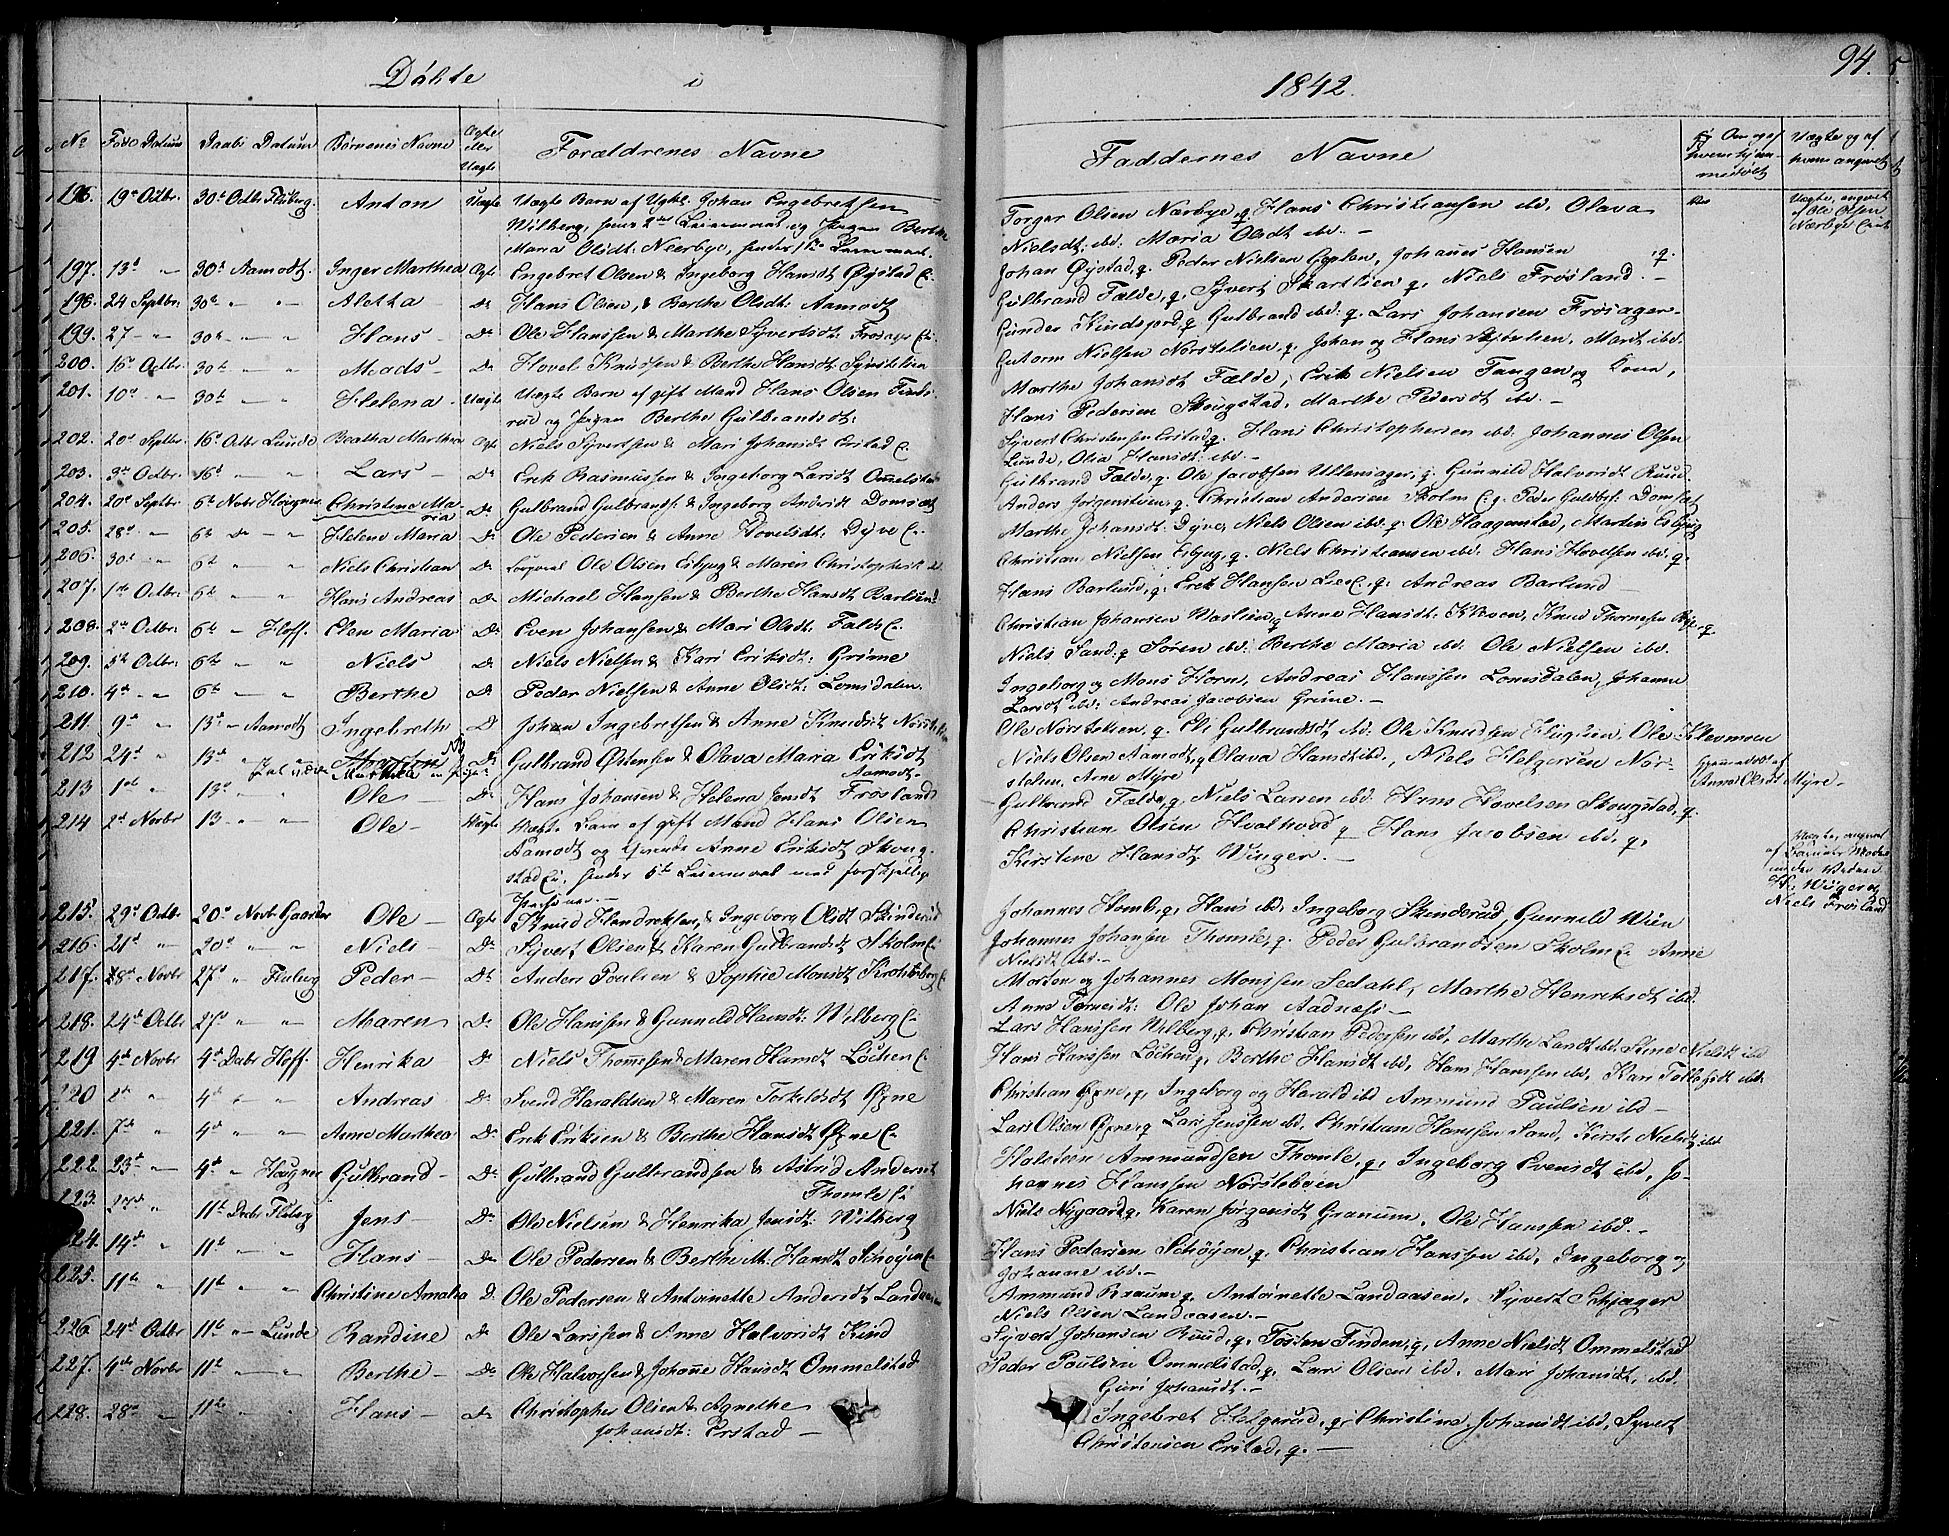 94.
Döbte i 1842.
No Föds Datum Daabs Datum Børnenes Navne Ægte eller Uægte Forældrenes Navne Faddernes Navne Uægte og af hvem angivet
196. 19de Octbr. 30te Octbr Fluberg. Anton Uægte Uægte Barn af Ugkl. Johan Engebretsen Torger Olsen Nærbye, q. Hans Christiansen ibd. Olava Uægte, angivet
Wilberg, hans 2det Leiermaal, og Pigen Berthe Nielsdt: ibd. Maria Olsdt ibd. — af Ole Olsen
Maria Olsdt: Neerbye, hendes 1ste Leiermaal. Nærbye
197. 13de " 30te Aamodt. Inger Marthea Ægte Engebret Olsen & Ingeborg Hansdt Øystad E. Johan Øystad, q. Peder Nielsen Johanes Hansen q.
198. 24 Septbr: 30te " " Aletta Do Hans Olsen, & Berthe Olsdt: Aamodt Gulbrand Fælde, q. Syvert Skartlien q. Niels Frøsland. —
199. 27 " 30te " " Hans Do Ole Hanssen & Marthe Syvertsdt: Frøsager Gunder Kindsjord q Gulbrand ibd: q. Lars Johansen Frøsager
200. 16de Octbr. 30te " " Mads Do Hovel Knudsen & Berthe Hansdt Guttorm Nielsen Norstelien, q. Johan og Hans Marit ibd.
201. 10de " 30te " " Helena Uægte Uægte Barn af gift Mand Hans Olsen Finds- Marthe Johansdt Fælde, Erik Nielsen Tangen og Kone,
rud og Pigen Berthe Gulbrandsdt: Hans Pedersen Skougstad, Marthe Pedersdt ibd. —
202. 20de Septbr. 16de Octbr Lunde Beatha Marthea Ægte Niels Syvertsen & Mari Johansdt Eristad E. Syvert Christensen Eristad q. Hans Christophersen ibd. Johannes Olsen
Lunde, Olia Hansdt: ibd. —
203. 3de Octbr. 16de " " Lars Do Erik Rasmussen & Ingeborg Larsdt Ommelstad Gulbrand Fælde, q. Ole Jacobsen Ullensager, q. Gunnild Halvorsdt Ruud.
204. 20de Septbr 6te Nobr Houngnes Christine Ma- Do Gulbrand Gulbrands: & Ingeborg Andersdt Domsæt Anders Jørgenstuen, q. Christian Andersen Skolm E. q. Peder Guldbr: Domsæt
ria
205. 28de " 6te do " Helene Maria Do Ole Pedersen & Anne Hovelsdt: Dyve E. Marthe Johansdt: Dyve, Niels Olsen ibd. q. Ole Haagenstad, Martin Esbjug
206. 30te " 6te " " Niels Christian Do Ole Olsen Esbjug & Maren Christophersdt Christian Nielsen Esbjug, q. Niels Christiansen ibd. Hans Hovelsen ibd. q.
207. 1ste Octbr. 6te " " Hans Andreas Do Michael Hansen & Berthe Hansdt Barlund Hans Barlund, q. Erik Hansen Lie E. q. Andreas Barlund —
208. 2de Octbr: 6te " Hoff. Elen Maria Do Even Johansen & Mari Olsdt: Fald E. Christian Johansen Waslien, q Anne Hansdt: Knud Thornesen q
209. 5te Octbr: 6te " " Niels Do Niels Nielsen & Kari Eriksdt: Grime Niels Sand: q Søren ibd: Berthe Maria ibd. Ole Nielsen ibd.
210. 4de " 6te " " Berthe Do Peder Nielsen & Anne Olsdt: Lomsdalen. Ingeborg og Mons Horn, Andreas Hanssen Lomsdalen, Johanne
Larsdt ibd: Andreas Jacobsen Grime. —
211. 9de " 13de " Aamodt Ingebreth Do Johan Ingebretsen & Anne Knudsdt Norstelien Ole Norstelien, q. Eli Gulbrandsdt ibd. Ole Knudsen Ole Klevmoen
212 24de " 13de " Do Gulbrand Østensen & Olava Maria Eriksdt Niels Olsen Aamodt, q Olava Hansdt ibd., Niels Helgersen Nor-
Marthea Aamodt stelien, Arne Myre Anne Olsdt Myre —
213 1ste " 13de " " Ole Do Hans Johansen & Helena Jensdt Frøsland Gulbrand Fælde, q. Niels Larsen ibd. Hans Hovelsen Skougstad, q.
214 2de Novbr 13 " " Ole Uægte Uægte Barn af gift Mand Hans Olsen Christian Olsen Hvalhoud q Hans Jacobsen ibd, q. Uægte, angivet
Aamodt og Anne Eriksdt Skoug- Kirstine Hansdt Winger. — af Barnets Moder
stad E., hendes 5te Leiermaal med forskjellige Winger og
Personer. — Niels Frøsland
215. 29de Octbr. 20de Novbr Gaarder Ole Ægte Knud Hendreksen, & Ingeborg Olsdt Skinderud Johannes Homb, q. Hans ibd. Ingeborg Skinderud, Gunneld Wien
216. 21de " 20de " " Niels Do Syvert Olsen & Karen Gulbrandsdt Skolm E. Johannes Johansen Thomle, q. Peder Gulbrandsen Skolm E. Anne
Nielsdt ibd. —
217. 28de Novbr 27de " Fluberg Peder Do Anders Poulsen & Sophie Monsdt E Morten og Johannes Monssen Sedahl, Marthe Henriksdt ibd.
Anne Torneisdt: Ole Johan Aadnæs. —
218. 24de Octbr 27de " " Maren Do Ole Hanssen & Gunneld Hansdt: Wilberg E. Lars Hanssen Wilberg, q. Christian Pedersen ibd, Marthe Larsdt ibd. Stine Nielsdt ibd
219 4de Novbr 4de Decbr Hoff. Henrika Do Niels Thomesen & Maren Hansdt Löchen E. Hans Hanssen Löchen q. Berthe Hansdt ibd, Hans Hanssen ibd, Kari ibd.
220 2de " 4de " " Andreas Do Svend Haraldsen & Maren Torkeldsdt Øgne Christian Øgne, q. Ingeborg og Harald ibd Ammund Paulsen ibd —
221. 7de " 4de " " Anne Marthea Do Erik Eriksen & Berthe Hansdt Øgne E. Lars Olsen Øgne, q Lars Jenssen ibd, Christian Hanssen Sand, Kirsti Nielsdt ibd
222 23de " 4de " Hougnes Gulbrand Do Gulbrand Gulbrandsen & Astrid Andersdt Halsteen Ammundsen Thomle, q. Ingeborg Evensdt ibd, Jo-
Thomle E. hannes Hanssen Norsteboen
223. 11te Decbr Fluberg Jens Do Ole Nielsen & Henrika Jensdt: Wilberg Niels Nygaard q. Karen Jörgensdt Granum, Ole Hansen ibd. —
224. 14de " 11te " " Hans Do Ole Pedersen & Berthe M. Hansdt Schøyen E Hans Pedersen Schøyen, q. Christian Hanssen ibd, Ingeborg og
Johanne ibd. —
225. 11te " 11te " " Christine Amalia D. Ole Pedersen & Antoinette Andersdt Landaasen Ammund Braum q. Antoinette Landaasen, Syvert Schjager
Niels Olsen Landaasen. —
226. 24de Octbr 11te " Lunde Randine Do Ole Larssen & Anne Halvorsdt Kind Syvert Johansen Ruud, q. Tosten Finden, q. Anne Nielsdt Ommelstad
227. 4de Novbr 11te " " Berthe Do Ole Halvorsen & Johanne Hansdt Ommelstad Peder Poulsen Ommelstad, q. Lars Olsen ibd. Mari Johansdt, ibd.
Guri Johansdt. —
228. 28de " 11te " " Hans Do Christopher Olsen & Agnethe Ingebret Helgerud, q. Christine Johansdt ibd, Syvert
Johansdt: Erstad — Christensen Eristad, q. —